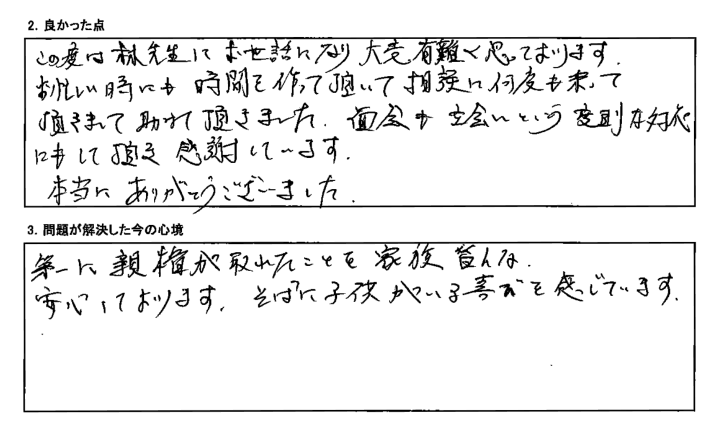 2. 良かった点
この度は林先生にお世話になり大変有難く思っております。
お忙しい時にも時間を作って頂いて相談に何度も乗って
頂きまして助けて頂きました。面会も立会いという変則な対応
にもして頂き感謝しています。
本当にありがとうございました。
3. 問題が解決した今の心境
第一に親権が取れたことを家族皆んな、
安心しております。そばに子供がいる喜びを感じています。